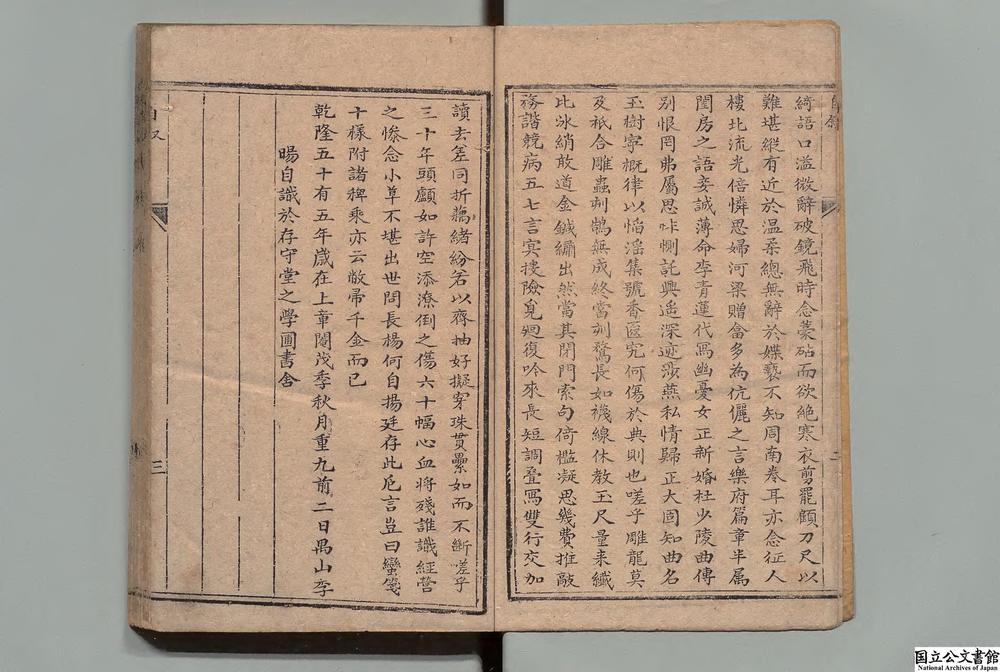 自敘
綺語口溢微辭破鏡飛時念藁砧而欲絶寒衣剪罷顧刀尺以
難堪縱有近於温柔總無辭於媟褻不知周南卷耳亦念征人
樓北流光倍憐思婦河梁贈畣多為伉儷之言樂府篇章半属
閨房之語妾誠薄命李青蓮代寫幽憂女正新婚杜少陵曲傳
别恨罔弗屬思吥惻託興遥深迹渉燕私情歸正大固知曲名
玉樹寜概律以慆滛集號香匳究何傷於典則也嗟乎雕龍莫
及祇合雕蟲刺鵠無成終當刻鶩長如襪線休教玉尺量来纎
比冰綃敢道金鍼繡出然當其閉門索句倚檻凝思幾費推敲
務諧競病五七言冥捜險覓廻復吟來長短調叠寫雙行交加
二
讀去差同折藕緒紛若以齊抽好擬穿珠貫纍如而不斷嗟乎
三十年頭顱如許空添潦倒之傷六十幅心血將殘誰識經營
之慘念小草不堪出世問長楊何自揚廷存此巵言豈曰蠻箋
十樣附諸稗乘亦云敝帚千金而已
乾隆五十有五年嵗在上章閹茂季秋月重九前二日禺山李
暘自識於存守堂之學圃書舍
自叙
三
国立公文書館
National Archives of Japan